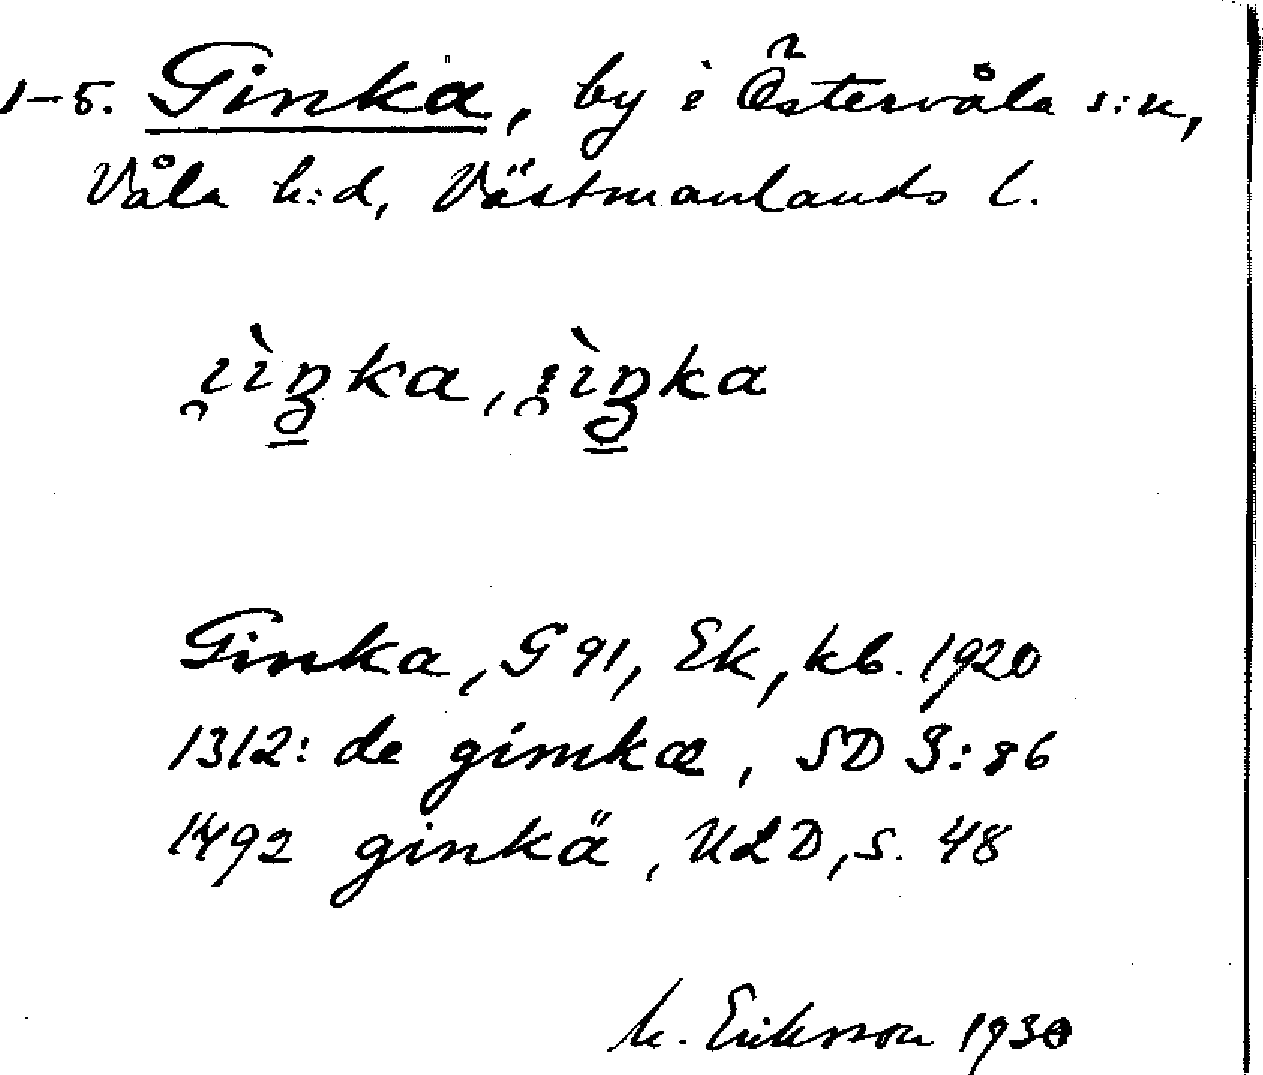 1-5. Ginka, by i Östervåla s:n,
Våla h:d, Västmanlands l.
Ginka, G 91, Ek, kb. 1920
1312: de gimkæ, SD 3:86
1492 ginkä, ULD, s. 48
M. Eriksson 1930